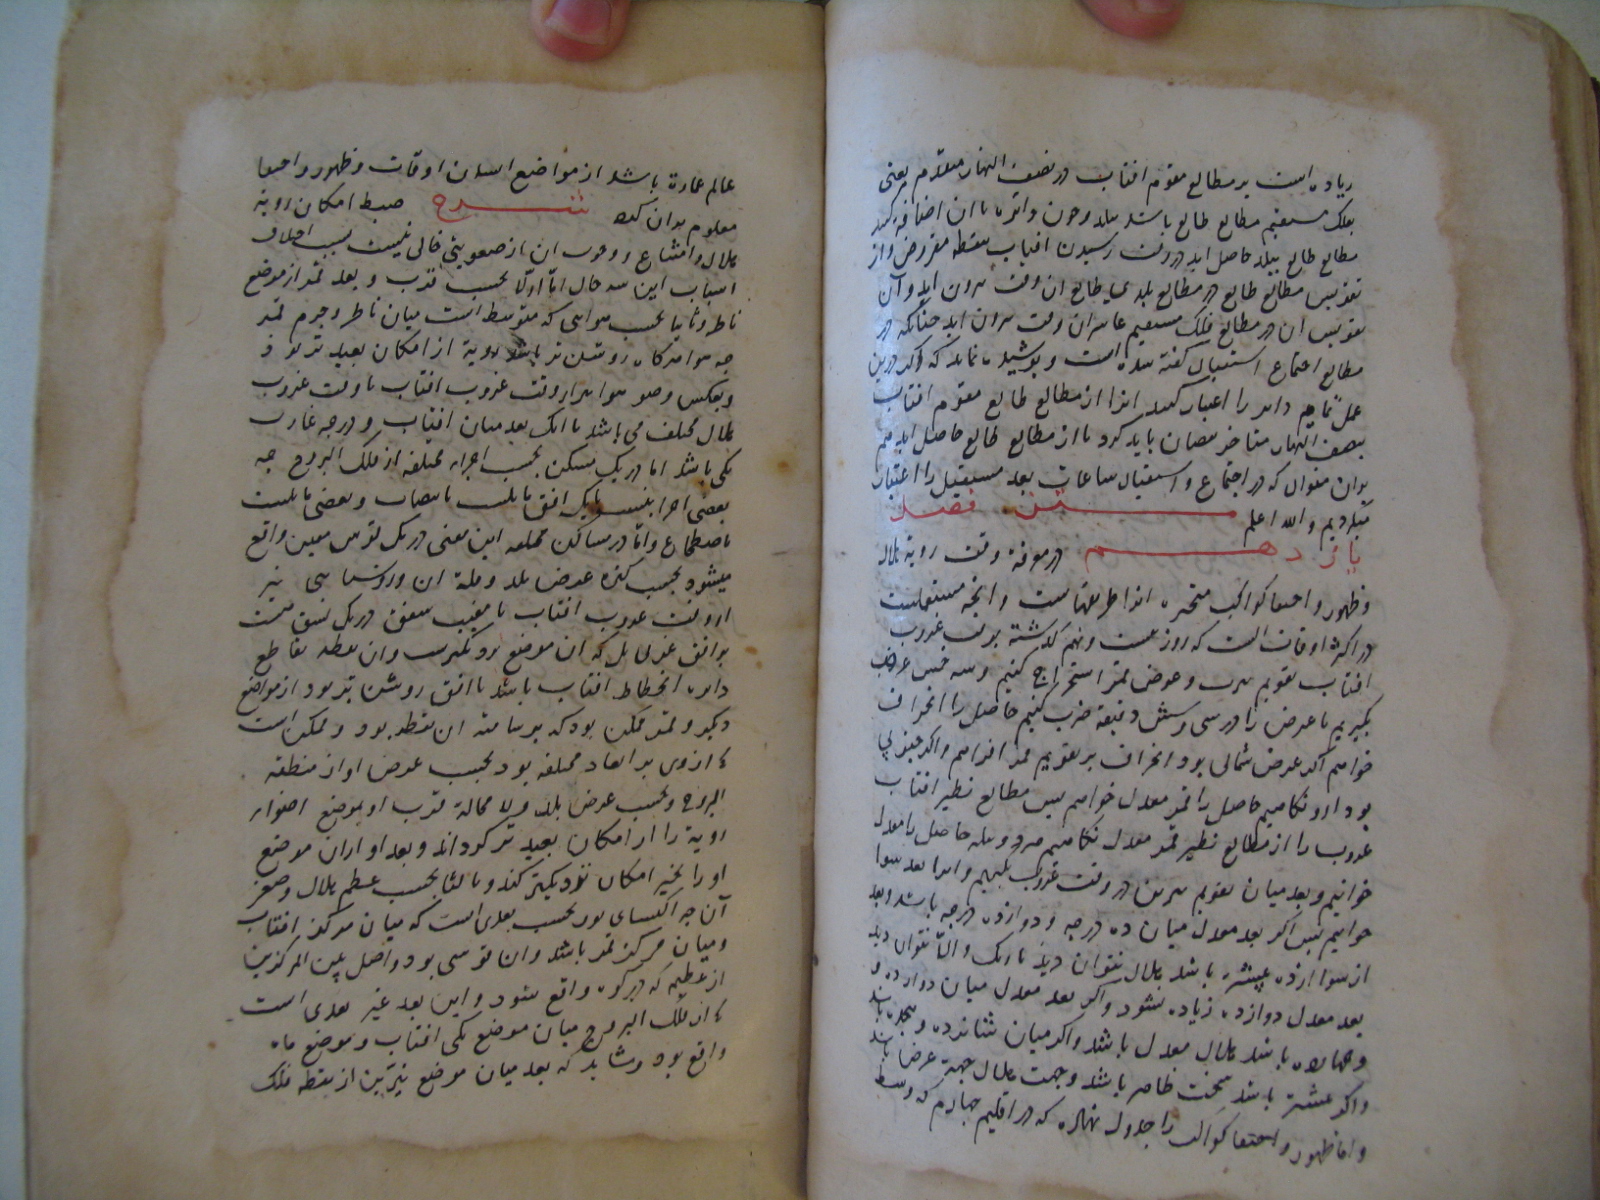 زیاده است بر مطالع مقوم افتاب در نصف النهار متقدم یعنی
بفلک مستقیم مطالع طالع باشد ببلد وچون دایره باان اضافه کنند
مطالع طالع ببلد حاصل اید در وقت رسیدن افتاب بنقطه مفروض واز
تقویس مطالع طالع در مطالع بلدی طالع ان وقت برون اید وآن
تقویس ان در مطالع فلک مستقیم عاشر ان وقت برون اید چنانکه در
مطالع اجتماع استقبال کفته شده است و پوشیده نماند که اکر درین
عمل دایر را اعتبار کنند انرا از مطالع طالع مقوم افتاب
بنصف النهار متاخر نقصان باید کرد تا از مطالع طالع حاصل اید هم
بران منوال که در اجتماع و استقبال ساعات بعد مستقبل را اعتبار
میکردیم والله اعلم متن فصل
یازدهم در معرفة وقت رویة هلال
وظهور واختفا کواکب متحیره انرا طریقهاست وانچه مستعملست
در اکثر اوقات انست که روز بیست ونهم کذشته بوقت غروب
افتاب تقویم نیرین وعرض قمر استخراج کنیم وسه خمس عرض
بکیریم یا عرض را در سی وشش دقیقه ضرب کنیم حاصل را انحراف
خوانیم اکر عرض شمالی بود انحراف بر تقویم قمر افزاییم واکر جنوبی
بود ازو بکاهیم حاصل را قمر معدل خوانیم پس مطالع نظیر افتاب
غروب را از مطالع نظیر قمر معدل بکاهیم حاصل را معدل
خوانیم وبعد میان تقویم نیرین در وقت غروب بکیریم وانرا بعد سوا
خوانیم پس اکر بعد معدل میان ده درجه ودوازده درجه باشد وبعد
از سوا ازده بیشتر باشد هلال بتوان دید باریک والا نتوان دید
بعد معدل دوازده زیاده شود واکر بعد معدل میان دوازده و
چهارده باشد هلال معدل باشد واکر میان شانزده وهجده باشد
واکر بیشتر باشد سخت ظاهر باشد وجهت هلال جهة عرض باشد
واما ظهور واختفا کواکب را جدول نهاده که در اقلیم چهارم که وسط
عالم عمارة باشد از مواضع ایشان اوقات وظهور واختفا
معلوم توان کرد شرح ضبط امکان رویة
هلال وامتناع ووجوب ان از صعوبتی خالی نیست بسبب اختلاف
اسباب این سه حال امّا اولاً بحسب قرب و بعد قمر از موضع
ناظر وثانیا بحسب هوایی که متوسط است میان ناظر وجرم قمر
چه هوا هرکاه روشن تر باشد رویة از امکان بعید تر بود
وبعکس وضو هوا از وقت غروب افتاب تا وقت غروب
هلال مختلف می باشد باانک بعد میان افتاب و درجه غارب
یکی باشد اما در یک مسکن بحسب اجزاء مختلفه از فلک البروج چه
بعضی اجزا بنسبت بایک افق مایلست بانتصاب وبعضی مایلست
باضطجاع وامّا در مساکن مختلفه این معنی در یک قوس معین واقع
میشود بحسب کثرة عرض بلد وقلة ان وروشنایی نیز
از وقت غروب افتاب تا مغیب شفق در یک نسق نیست
بر افق غربی بل که ان موضع نزدیکترست وان نقطه تقاطع
دایره انحطاط افتاب باشد با افق روشن تر بود از مواضع
دیکر وقمر ممکن بود که بر سامته ان نقطه بود وممکن است
که ازوی بر ابعاد مختلفه بود بحسب عرض او از منطقه
البروج وبحسب عرض بلد ولا محاله قرب او بموضع اضوا
رویة را از امکان بعید تر کرداند وبعد او ازان موضع
او را بحیز امکان نزدیکتر کند وثالثا بحسب عظم هلال وصغر
آن چه اکتسای نور بحسب بعدی است که میان مرکز افتاب
ومیان مرکز قمر باشد وان قوسی بود واصل بین المرکزین
از عظیمه که برکره واقع شود واین بعد غیر بعدی است
که از فلک البروج میان موضع یکی افتاب وموضع ماه
واقع بود وشاید که بعد میان موضع نیّرین از نقطه فلک